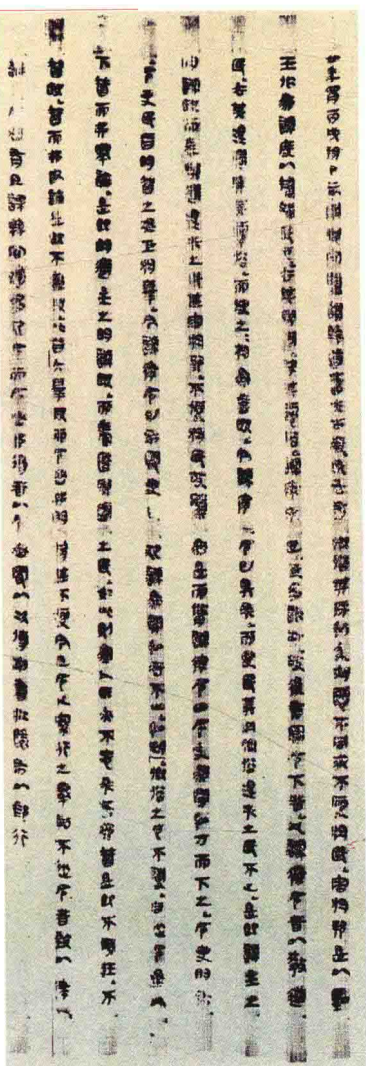 廿年四月丙戌朔丁亥南郡守騰謂縣道嗇夫古者民各有鄉俗其所利及好惡不同或不便於民害於邦是以聖
王作為法度以矯端民心去其邪避除其惡俗法律未足民多詐巧故後有閒令下者凡法律令者以教道
民去其淫避除其惡俗而使之之於為善殹今法律令已具矣而吏民莫用鄉俗淫失之民不止是即廢主之
明法殹而長邪避淫失之民甚害於邦不便於民故騰為是而脩法律令田令及為閒私方而下之令吏明布
令吏民皆明智之毋巨於罪今法律令已布聞吏民犯法為閒私者不止私好鄉俗之心不變自從令丞以
下智而弗舉論是即明避主之明法殹而養匿邪避之民如此則為人臣亦不忠矣若弗智是即不勝任不
智殹智而弗敢論是即不廉殹此皆大罪殹而令丞弗明智甚不便今且令人案行之舉劾不從令者致以律
論及令丞有且課縣官獨多犯令而令丞弗得者以令丞聞以次傳別書江陵布以郵行